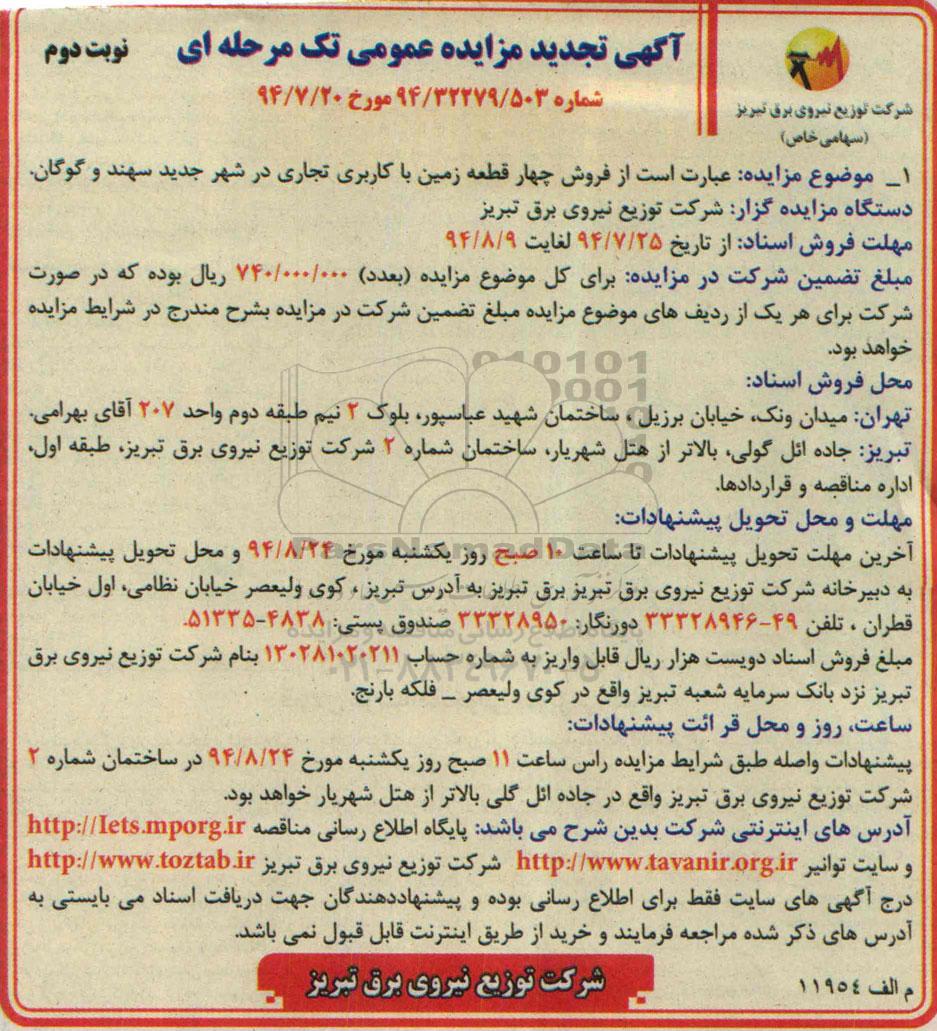 آگهی تجدید مزایده عمومی تک مرحله ای
نوبت دوم
شماره ۹۴/۳۲۲۷۹/۵۰۳ مورخ ۹۴/۷/۲۰
شرکت توزیع نیروی برق تبریز
(سهامی خاص)
۱_ موضوع مزایده: عبارت است از فروش چهار قطعه زمین با کاربری تجاری در شهر جدید سهند و گوگان.
دستگاه مزایده گزار: شرکت توزیع نیروی برق تبریز
مهلت فروش اسناد: از تاریخ ۹۴/۷/۲۵ لغایت ۹۴/۸/۹
مبلغ تضمین شرکت در مزایده: برای کل موضوع مزایده (بعدد) ۷۴۰/۰۰۰/۰۰۰ ریال بوده که در صورت
شرکت برای هر یک از ردیف های موضوع مزایده مبلغ تضمین شرکت در مزایده بشرح مندرج در شرایط مزایده
خواهد بود.
محل فروش اسناد:
تهران: میدان ونک، خیابان برزیل ، ساختمان شهید عباسپور، بلوک ۲ نیم طبقه دوم واحد ۲۰۷ آقای بهرامی.
تبریز: جاده ائل گولی، بالاتر از هتل شهریار، ساختمان شماره ۲ شرکت توزیع نیروی برق تبریز، طبقه اول،
اداره مناقصه و قراردادها.
مهلت و محل تحویل پیشنهادات:
آخرین مهلت تحویل پیشنهادات تا ساعت ۱۰ صبح روز یکشنبه مورخ ۹۴/۸/۲۴ و محل تحویل پیشنهادات
به دبیرخانه شرکت توزیع نیروی برق تبریز برق تبریز به آدرس تبریز ، کوی ولیعصر خیابان نظامی، اول خیابان
قطران ، تلفن ۴۹-۳۳۳۲۸۹۴۶ دورنگار: ۳۳۳۲۸۹۵۰ صندوق پستی: ۴۸۳۸-۵۱۳۳۵.
مبلغ فروش اسناد دویست هزار ریال قابل واریز به شماره حساب ۱۳۰۲۸۱۰۲۰۲۱۱ بنام شرکت توزیع نیروی برق
تبریز نزد بانک سرمایه شعبه تبریز واقع در کوی ولیعصر _ فلکه بارنج.
ساعت، روز و محل قرائت پیشنهادات:
پیشنهادات واصله طبق شرایط مزایده راس ساعت ۱۱ صبح روز یکشنبه مورخ ۹۴/۸/۲۴ در ساختمان شماره ۲
شرکت توزیع نیروی برق تبریز واقع در جاده ائل گلی بالاتر از هتل شهریار خواهد بود.
آدرس های اینترنتی شرکت بدین شرح می باشد: پایگاه اطلاع رسانی مناقصه http://Iets.mporg.ir
و سایت توانیر http://www.tavanir.org.ir شرکت توزیع نیروی برق تبریز http://www.toztab.ir
درج آگهی های سایت فقط برای اطلاع رسانی بوده و پیشنهاددهندگان جهت دریافت اسناد می بایستی به
آدرس های ذکر شده مراجعه فرمایند و خرید از طریق اینترنت قابل قبول نمی باشد.
م الف ۱۱۹۵۴
شرکت توزیع نیروی برق تبریز
ParsNamadData